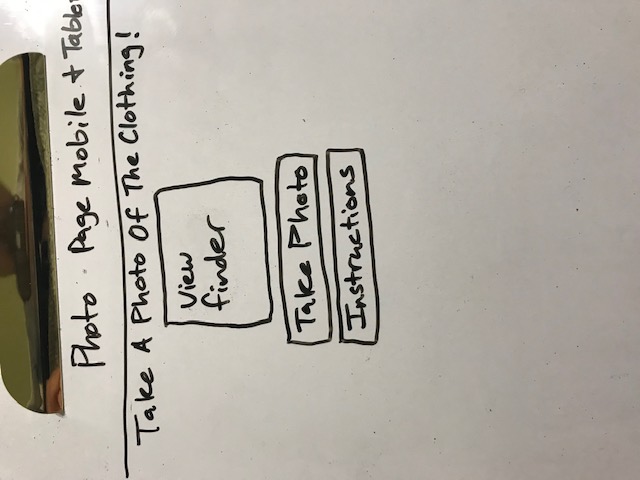 Photo Page Mobile + Table
Take A Photo Of The Clothing!
View
finder
Take Photo
Instructions